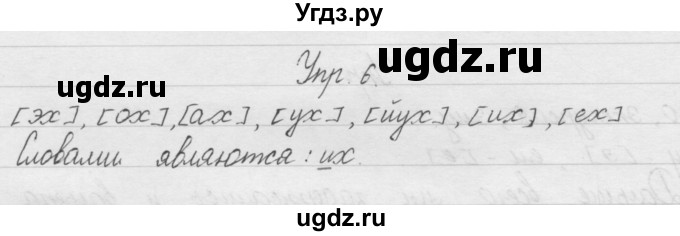 Угдз.ру
ugdz.ru
Упр. 6.
ugdz.ru
[эх], [ох], [ах], [ух], [йух], [их], [ех]
Словами являются: их.
ugdz.ru
ugdz.ru